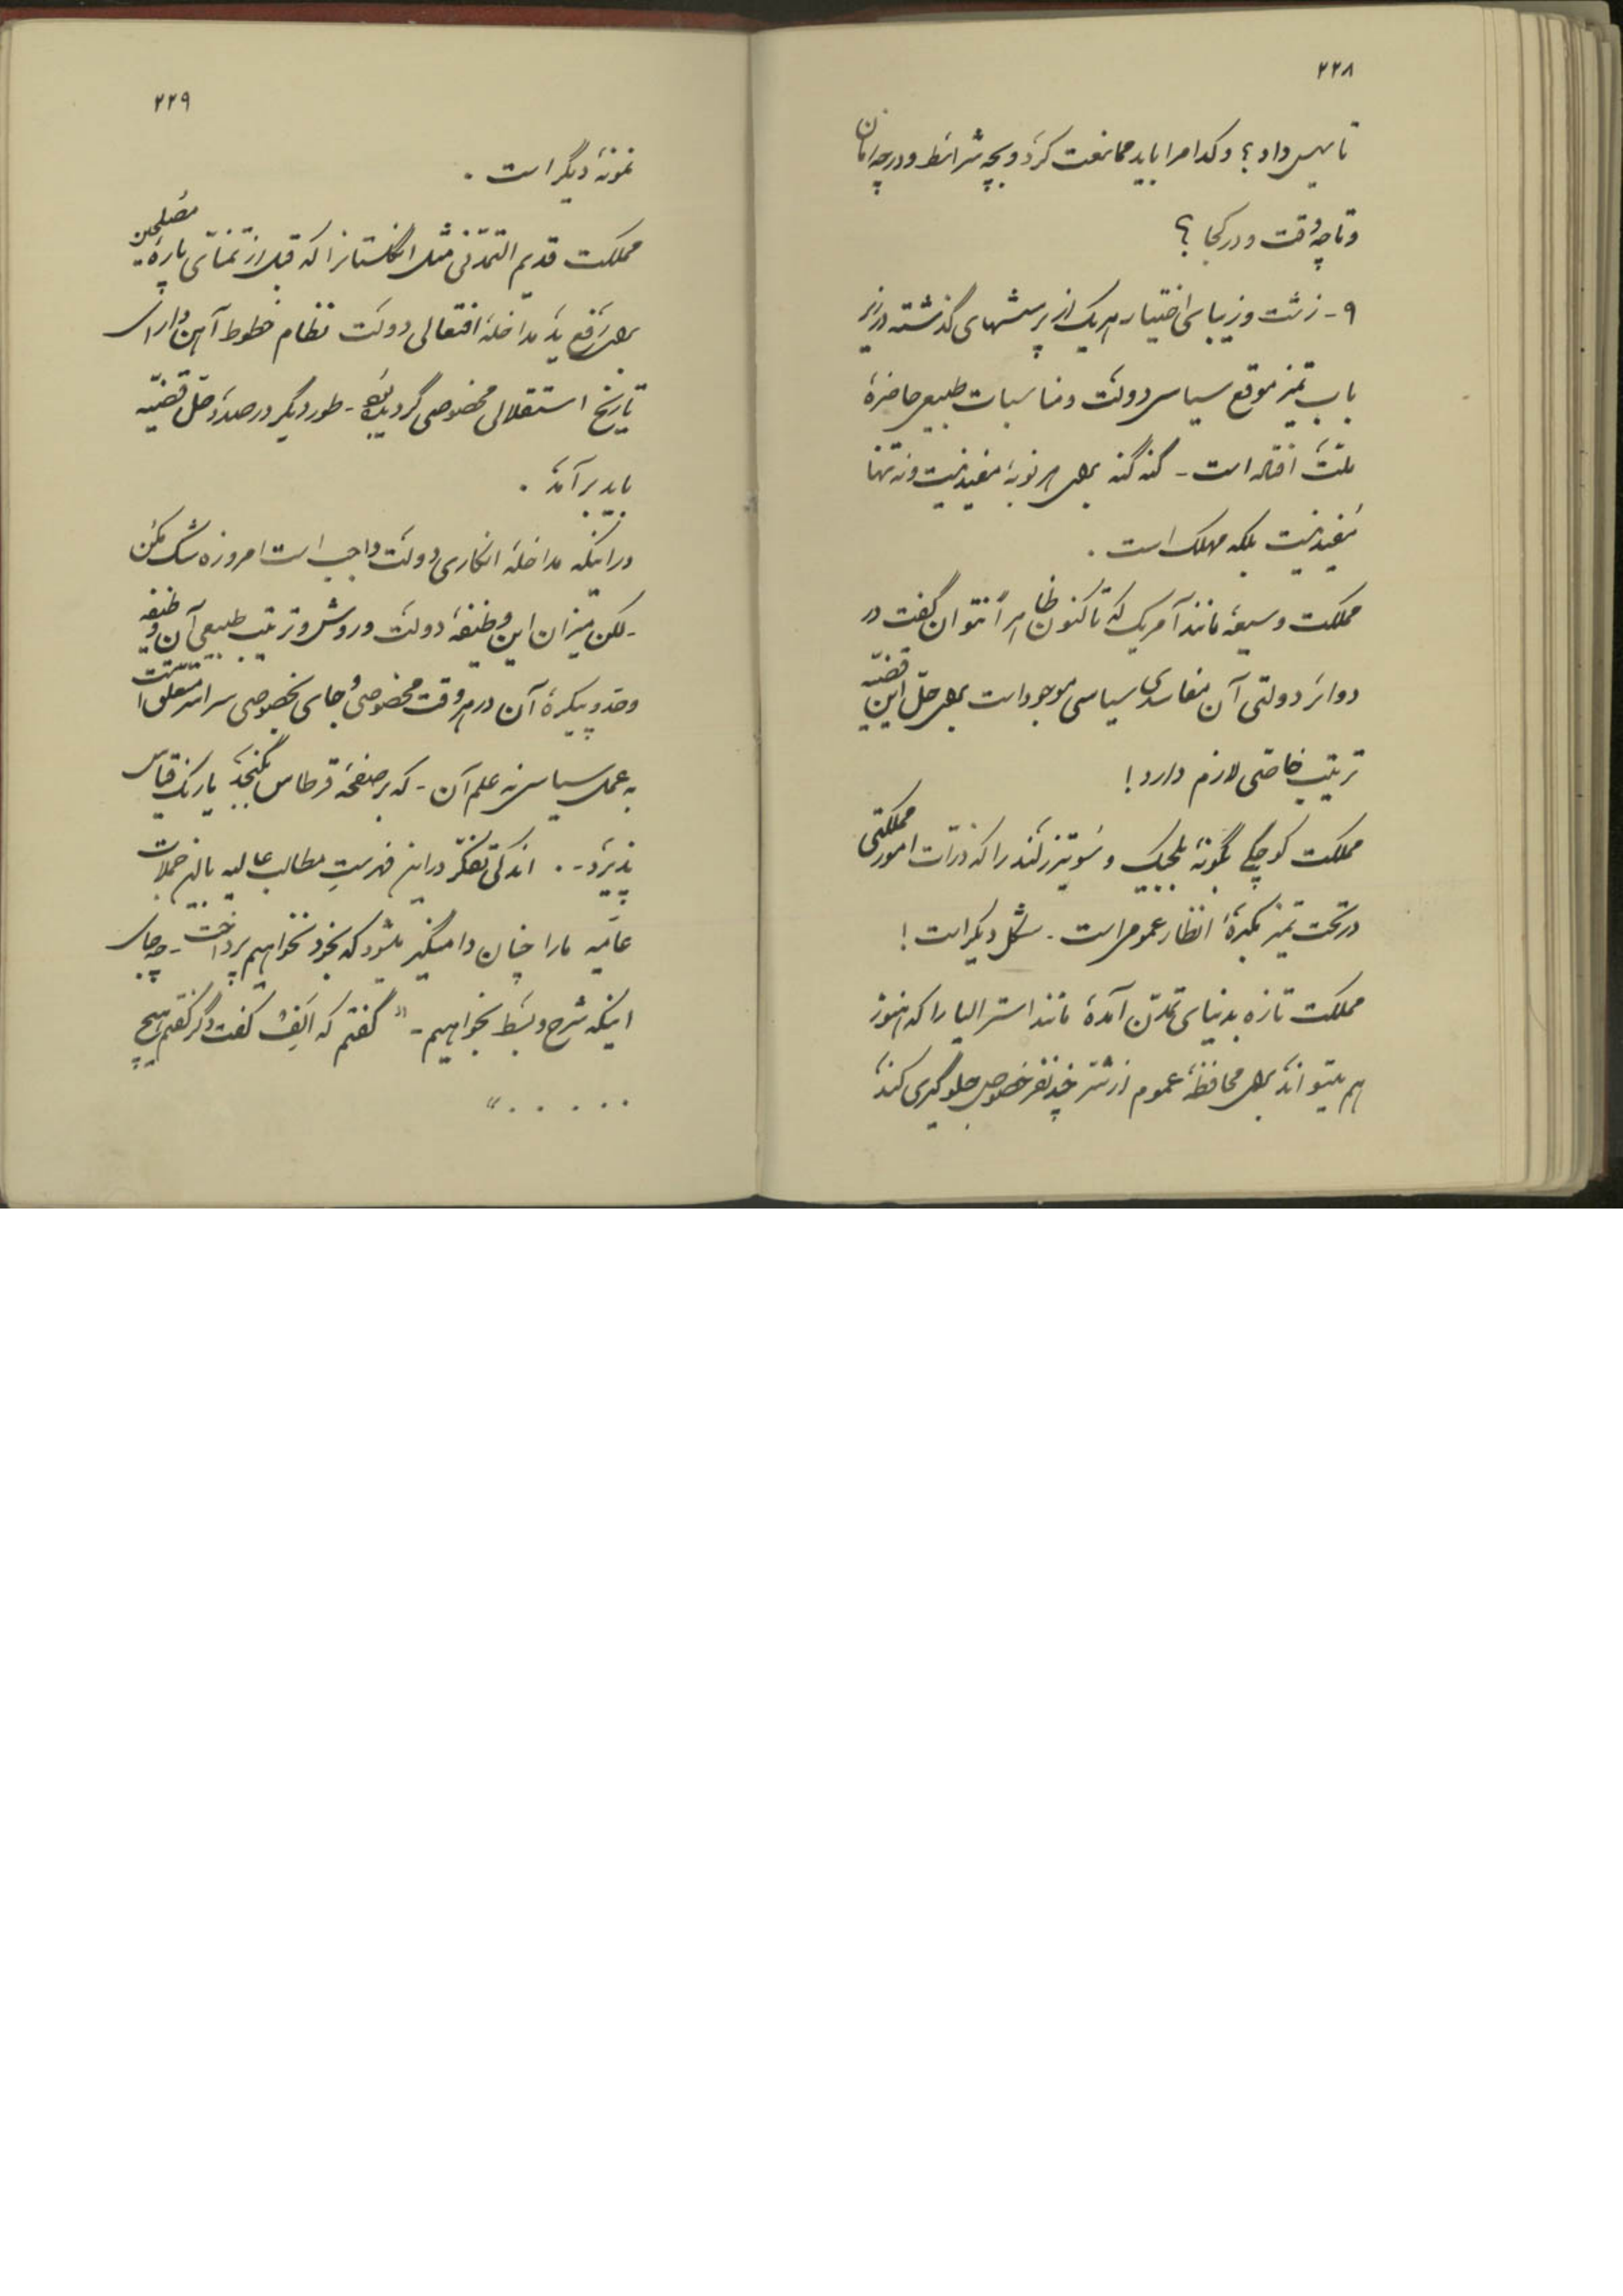 ۲۲۸
تأسیس داد؟ و کدامرا باید ممانعت کرد و بچه شرائط و در چه زمان
و تا چه وقت و در کجا؟
۹- زشت و زیبای اختیار هر یک از پرسشهای گذشته در زیر
باب تمیز موقع سیاسی دولت و مناسبات طبیعی حاضرهٔ
ملت افتاده است - گنه گنه برای هر نوبهٔ مفید نیست و نه تنها
مفید نیست بلکه مهلک است .
مملکت وسیعهٔ مانند آمریک که تاکنون ظاهراً نتوان گفت در
دوائر دولتی آن مفاسدی سیاسی موجود است برای حلّ این قضیّه
ترتیب خاصّی لازم دارد!
مملکت کوچکی بگونهٔ بلجیک و سویتزرلند را که ذرّات امور مملکتی
در تحت تمیز یکمرهٔ انظار عمومی است - شکل دیگر است!
مملکت تازه بدنیای تمدّن آمدهٔ مانند استرالیا را که هنوز
هم میتواند برای محافظهٔ عموم از شرّ چند نفر خصوصی جلوگیری کند
۲۲۹
نمونهٔ دیگر است .
مملکت قدیم التمدّنی مثل انگلستانرا که قبل از تمنّای پارهٔ مصلحین
برای رفع ید مداخلهٔ افتعالی دولت نظام خطوط آهن دارای
تاریخ استقلالی مخصوصی گردیده - طور دیگر در صدد حلّ قضیّه
باید برآمد .
در اینکه مداخلهٔ انکاری دولت واجب است امروزه شک نیست
- لکن میزان این وظیفهٔ دولت و روش و ترتیب طبیعی آن وظیفه
وحد و پیکرهٔ آن در هر وقت مخصوصی و جای بخصوصی سراسر متعلق است
به عمل سیاسی نه علم آن - که بر صفحهٔ قرطاس نگنجد یا رنگ قیاس
پذیرد - . اندکی تفکّر در این فهرستِ مطالب عالیه با این جملات
عامّیه ما را چنان دامنگیر میشود که بخود نخواهیم پرداخت - چه جای
اینکه شرح و بسط بخواهیم - " گفتم که الف گفت دگر گفتم هیچ
. . . . . "